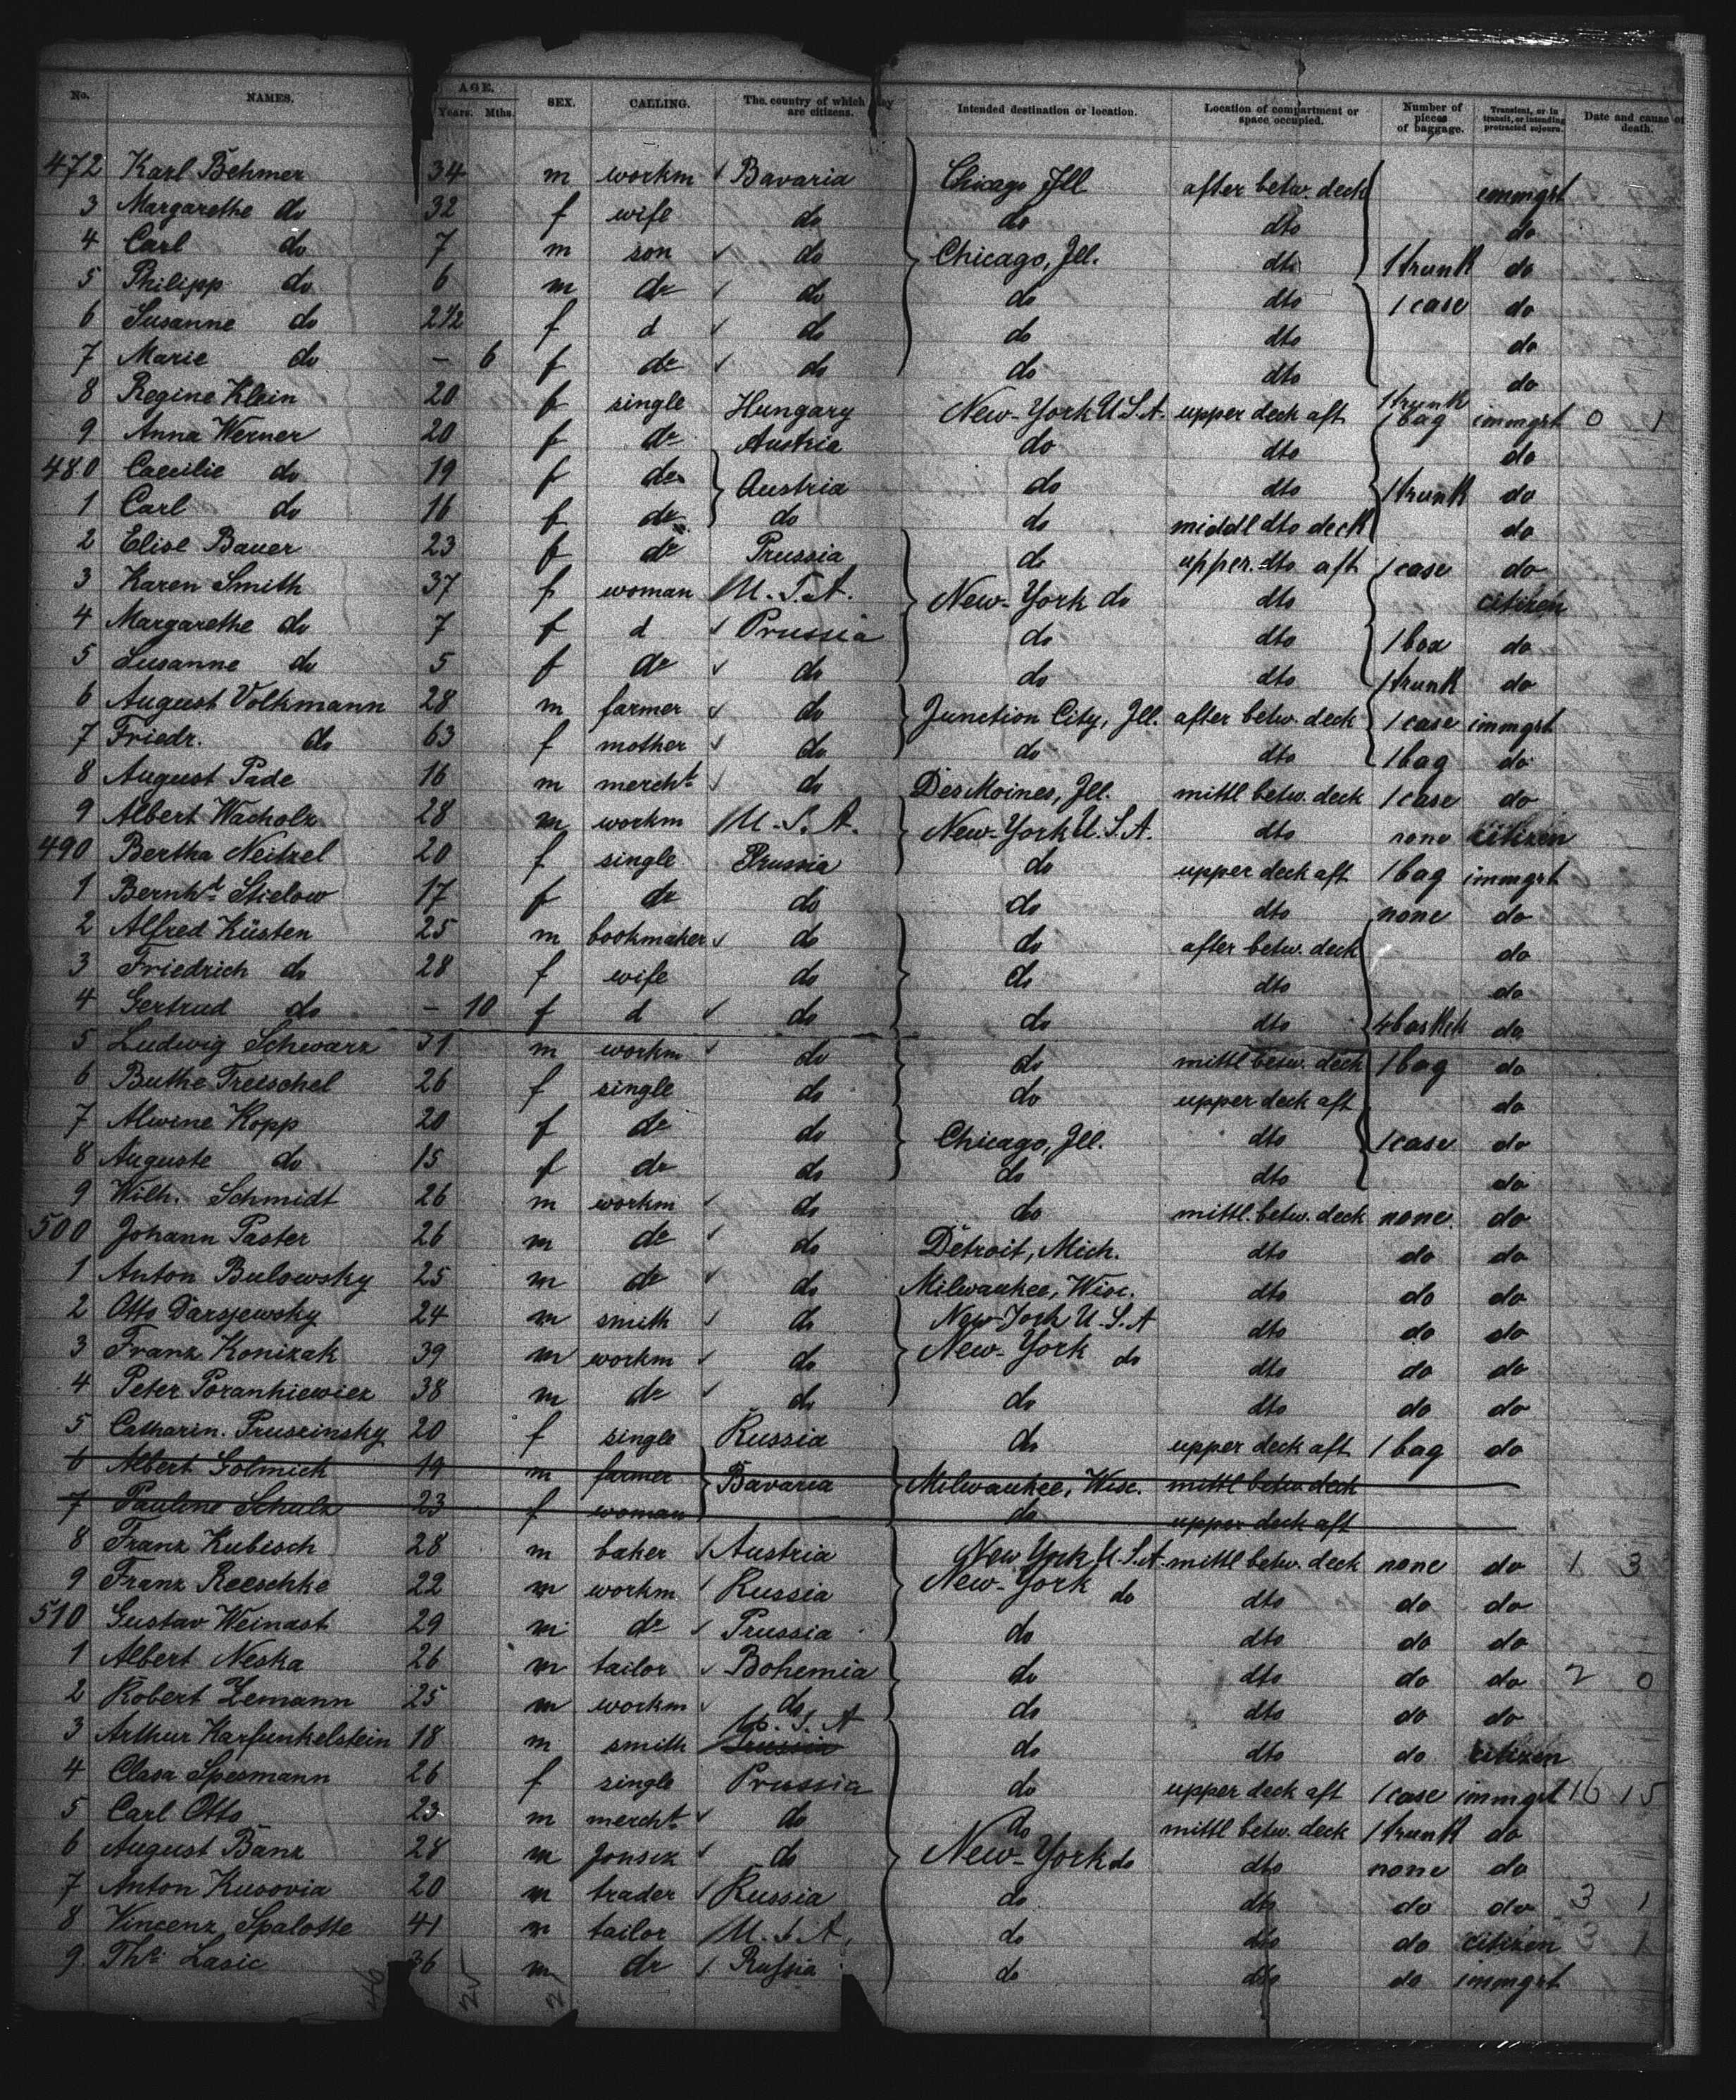 No. NAMES. AGE. Years. Mths. SEX. CALLING. The country of which they are citizens. Intended destination or location. Location of compartment or space occupied. Number of pieces of baggage. Transient, or in transit, or intending protracted sojourn. Date and cause of death.
472 Karl Behmer 34 m workm Bavaria Chicago Ill after betw. deck immgrt
3 Margarethe do 32 f wife do do dto do
4 Carl do 7 m son do Chicago, Ill. dto 1 trunk do
5 Philipp do 6 m do do do dto 1 case do
6 Susanne do 2 1/2 f d do do dto do
7 Marie do – 6 f do do do dto do
8 Regine Klein 20 f single Hungary New-York U.S.A. upper deck aft 1 trunk 1 bag immgrt 0 1
9 Anna Werner 20 f do Austria do dto do
480 Caecilie do 19 f do Austria do dto 1 trunk do
1 Carl do 16 f do do do middl dto deck do
2 Elise Bauer 23 f do Prussia do upper dto aft 1 case do
3 Karen Smith 37 f woman U.S.A. New-York do dto citizen
4 Margarethe do 7 f d Prussia do dto 1 box do
5 Susanne do 5 f do do do dto 1 trunk do
6 August Volkmann 28 m farmer do Junction City, Ill. after betw. deck 1 case immgrt
7 Friedr. do 63 f mother do do dto 1 bag do
8 August Pade 16 m mercht do Des Moines, Ill. mittl betw. deck 1 case do
9 Albert Wacholz 28 m workm U.S.A. New-York U.S.A. dto none citizen
490 Bertha Neitzel 20 f single Prussia do upper deck aft 1 bag immgrt
1 Bernhd Stielow 17 f do do do dto none do
2 Alfred Küsten 25 m bookmaker do do after betw. deck do
3 Friedrich do 28 f wife do do dto do
4 Gertrud do – 10 f d do do dto 4 baskets do
5 Ludwig Schwarz 31 m workm do do mittl betw. deck 1 bag do
6 Buthe Treischel 26 f single do do upper deck aft do
7 Alwine Kopp 20 f do do Chicago, Ill. dto 1 case do
8 Auguste do 15 f do do do dto do
9 Wilh. Schmidt 26 m workm do do mittl. betw. deck none do
500 Johann Paster 26 m do do Detroit, Mich. dto do do
1 Anton Bulowsky 25 m do do Milwaukee, Wisc. dto do do
2 Otto Darsjewsky 24 m smith do New-York U.S.A dto do do
3 Franz Konizak 39 m workm do New-York do dto do do
4 Peter Porankiewiez 38 m do do do dto do do
5 Catharin. Pruszinsky 20 f single Russia do upper deck aft 1 bag do
6 Albert Golmick 19 m farmer Bavaria Milwaukee, Wisc. mittl betw. deck
7 Pauline Schulz 23 f woman do upper deck aft
8 Franz Kubisch 28 m baker Austria New York U.S.A. mittl betw. deck none do 1 3
9 Franz Reeschke 22 m workm Russia New-York do dto do do
510 Gustav Weinast 29 m do Prussia do dto do do
1 Albert Neska 26 m tailor Bohemia do dto do do 2 0
2 Robert Lemann 25 m workm do do dto do do
3 Arthur Karfunkelstein 18 m smith U.S.A Prussia do dto do citizen
4 Clara Spermann 26 f single Prussia do upper deck aft 1 case immgrt 16 15
5 Carl Otto 23 m mercht do do mittl betw. deck 1 trunk do
6 August Banz 28 m do New-York do dto none do
7 Anton Kusovia 20 m trader Russia do dto do do 3 1
8 Vincenz Spalotte 41 m tailor U.S.A. do dto do citizen 3 1
9 Ths Lasic 36 m do Russia do dto do immgrt